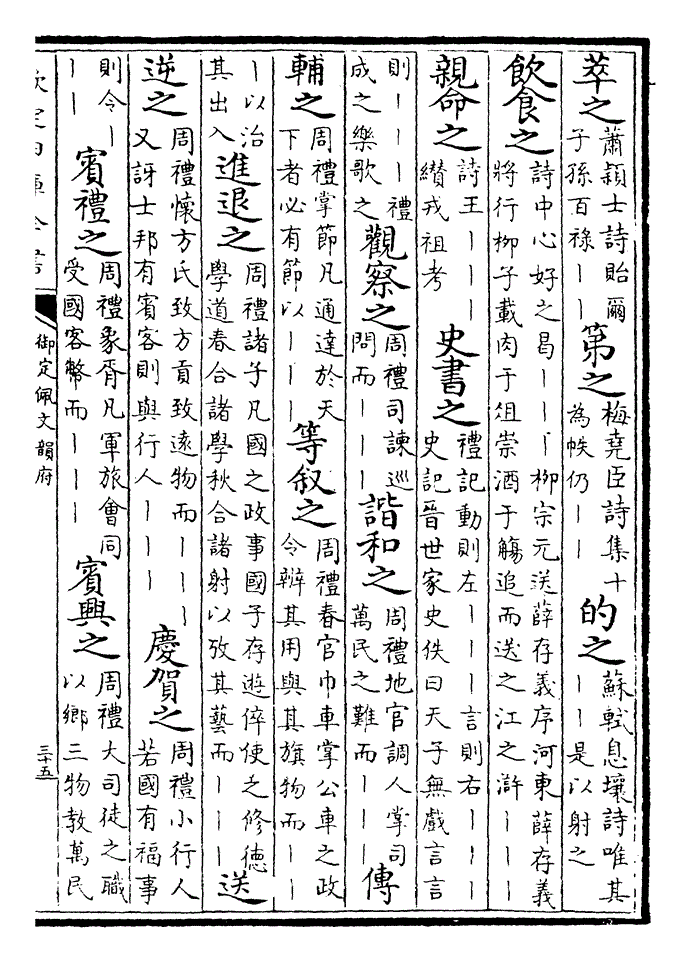 萃之蕭穎士詩貽爾子孫百祿丨丨第之梅堯臣詩集十為帙仍丨丨的之蘇軾息壤詩唯其丨丨是以射之
飲食之詩中心好之曷丨丨丨柳宗元送薛存義序河東薛存義將行柳子載肉于俎崇酒于觴追而送之江之滸丨丨丨
親命之詩王丨丨丨纘戎祖考史書之禮記動則左丨丨丨言則右丨丨丨史記晉世家史佚曰天子無戲言言
則丨丨丨禮成之樂歌之觀察之周禮司諫巡問而丨丨丨諧和之周禮地官調人掌司萬民之難而丨丨丨傳
輔之周禮掌節凡通達於天下者必有節以丨丨丨等叙之周禮春官巾車掌公車之政令辨其用與其旗物而丨丨丨
丨以治其出入進退之周禮諸子凡國之政事國子存遊倅使之修德學道春合諸學秋合諸射以攷其藝而丨丨丨送
逆之周禮懷方氏致方貢致遠物而丨丨丨又訝士邦有賓客則與行人丨丨丨慶賀之周禮小行人若國有福事
則令丨丨丨賓禮之周禮象胥凡軍旅會同受國客幣而丨丨丨賓興之周禮大司徒之職以鄉三物教萬民
欽定四庫全書 御定佩文韻府 三十五